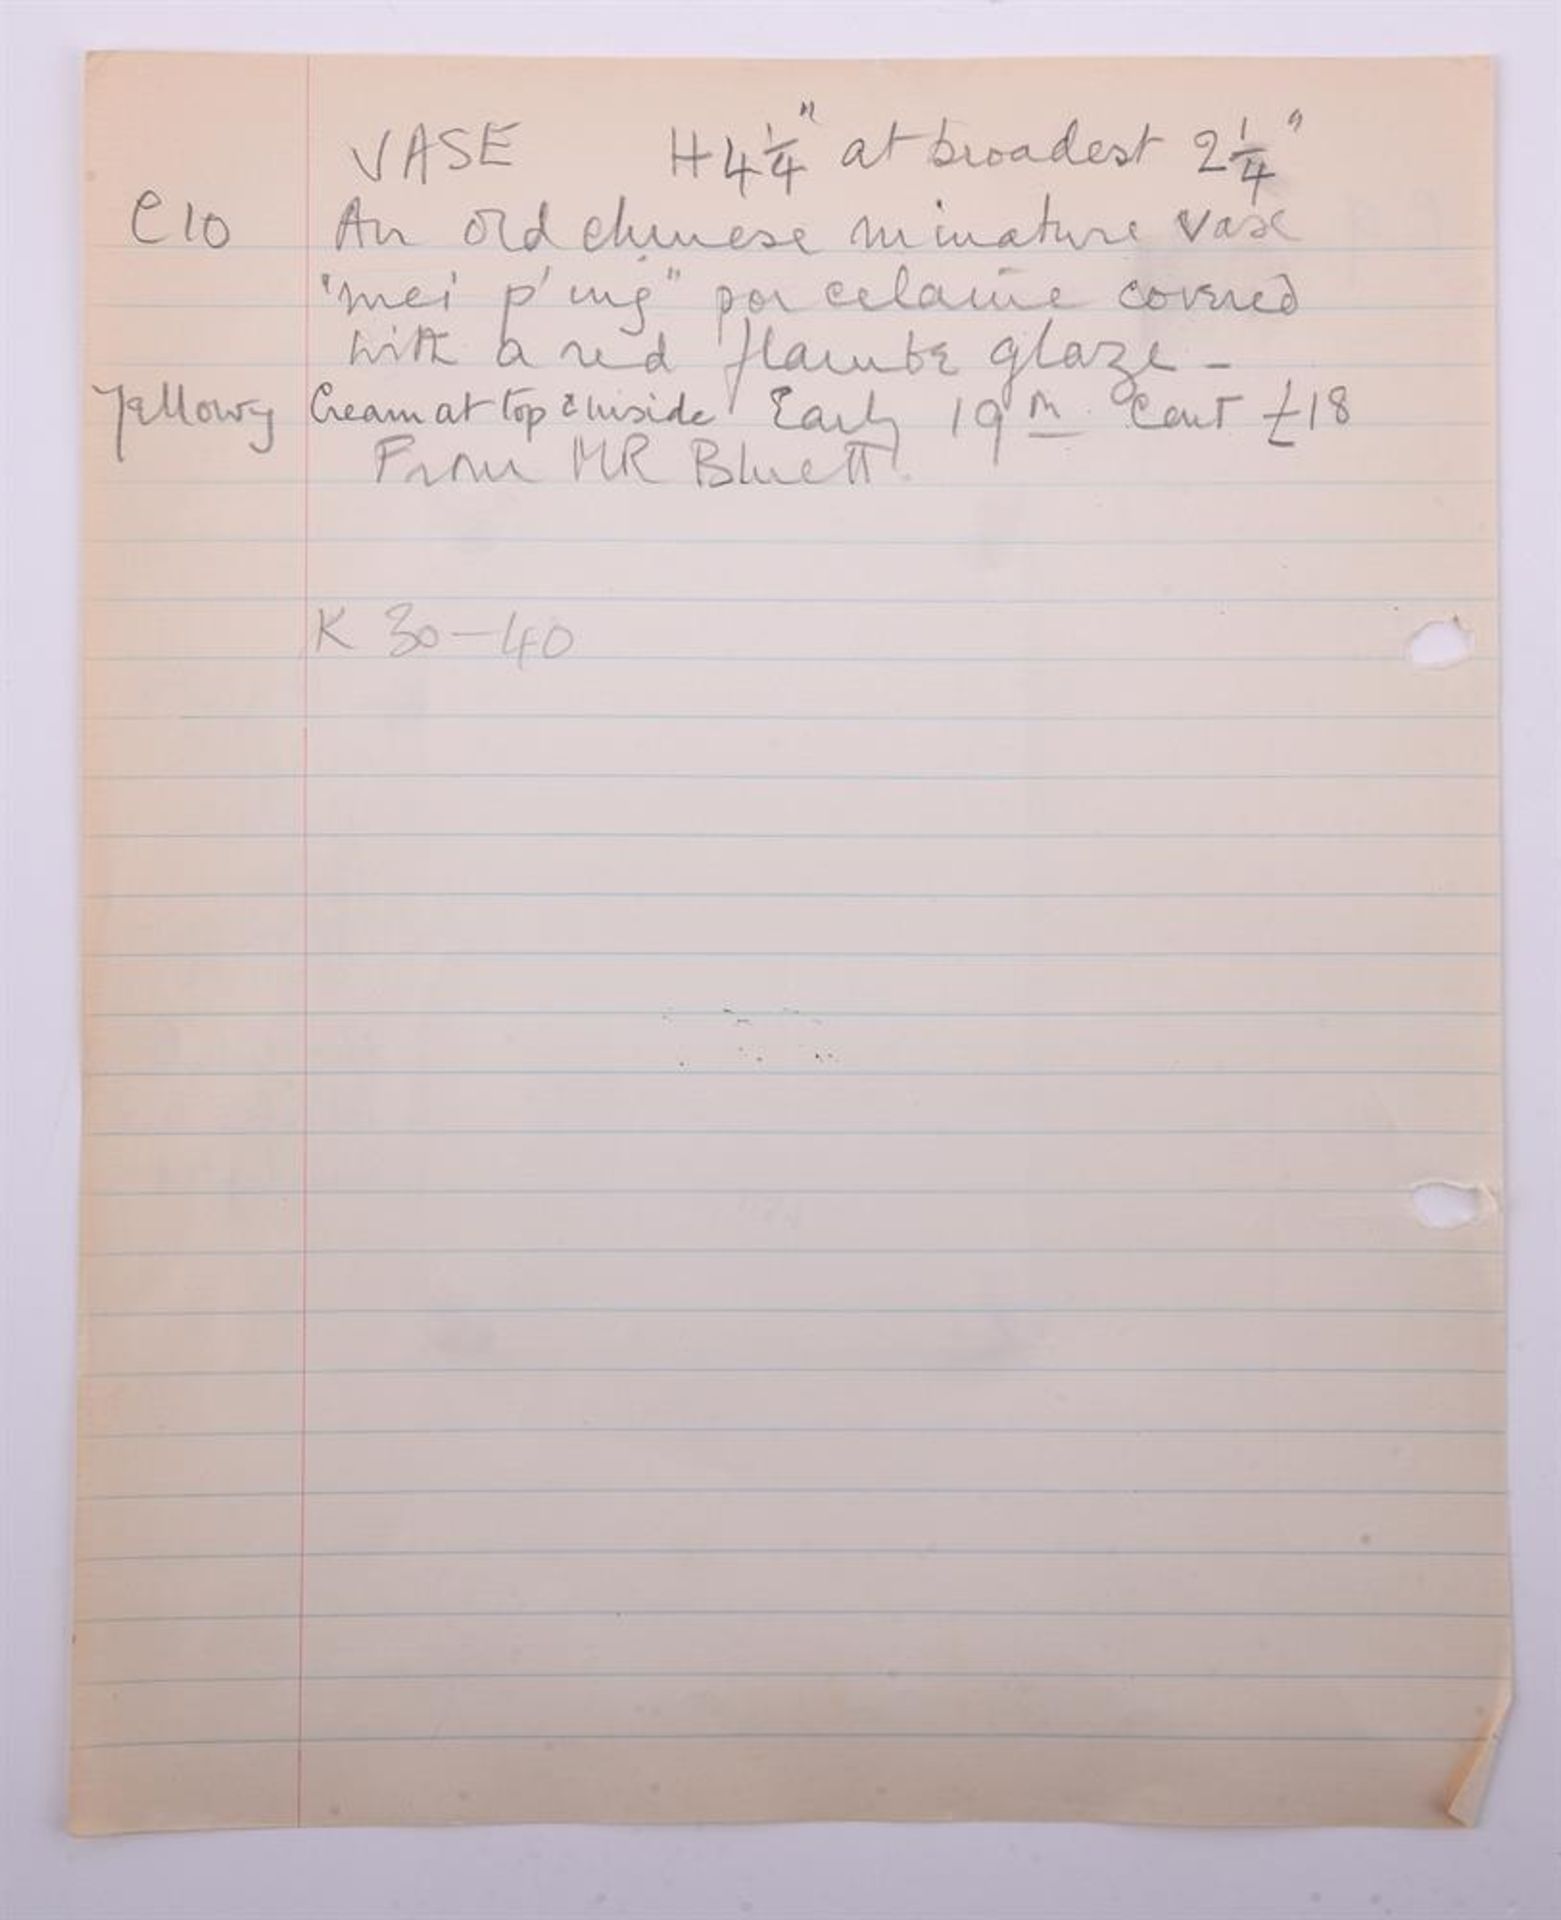 VASE H 4 1/4" at broadest 2 1/4"
C10 An old chinese minature vase
"mei p'ing" porcelaine covered
with a red flambe glaze -
Yellowy Cream at top & inside Early 19th Cent £18
From MR Bluett.
K 30-40